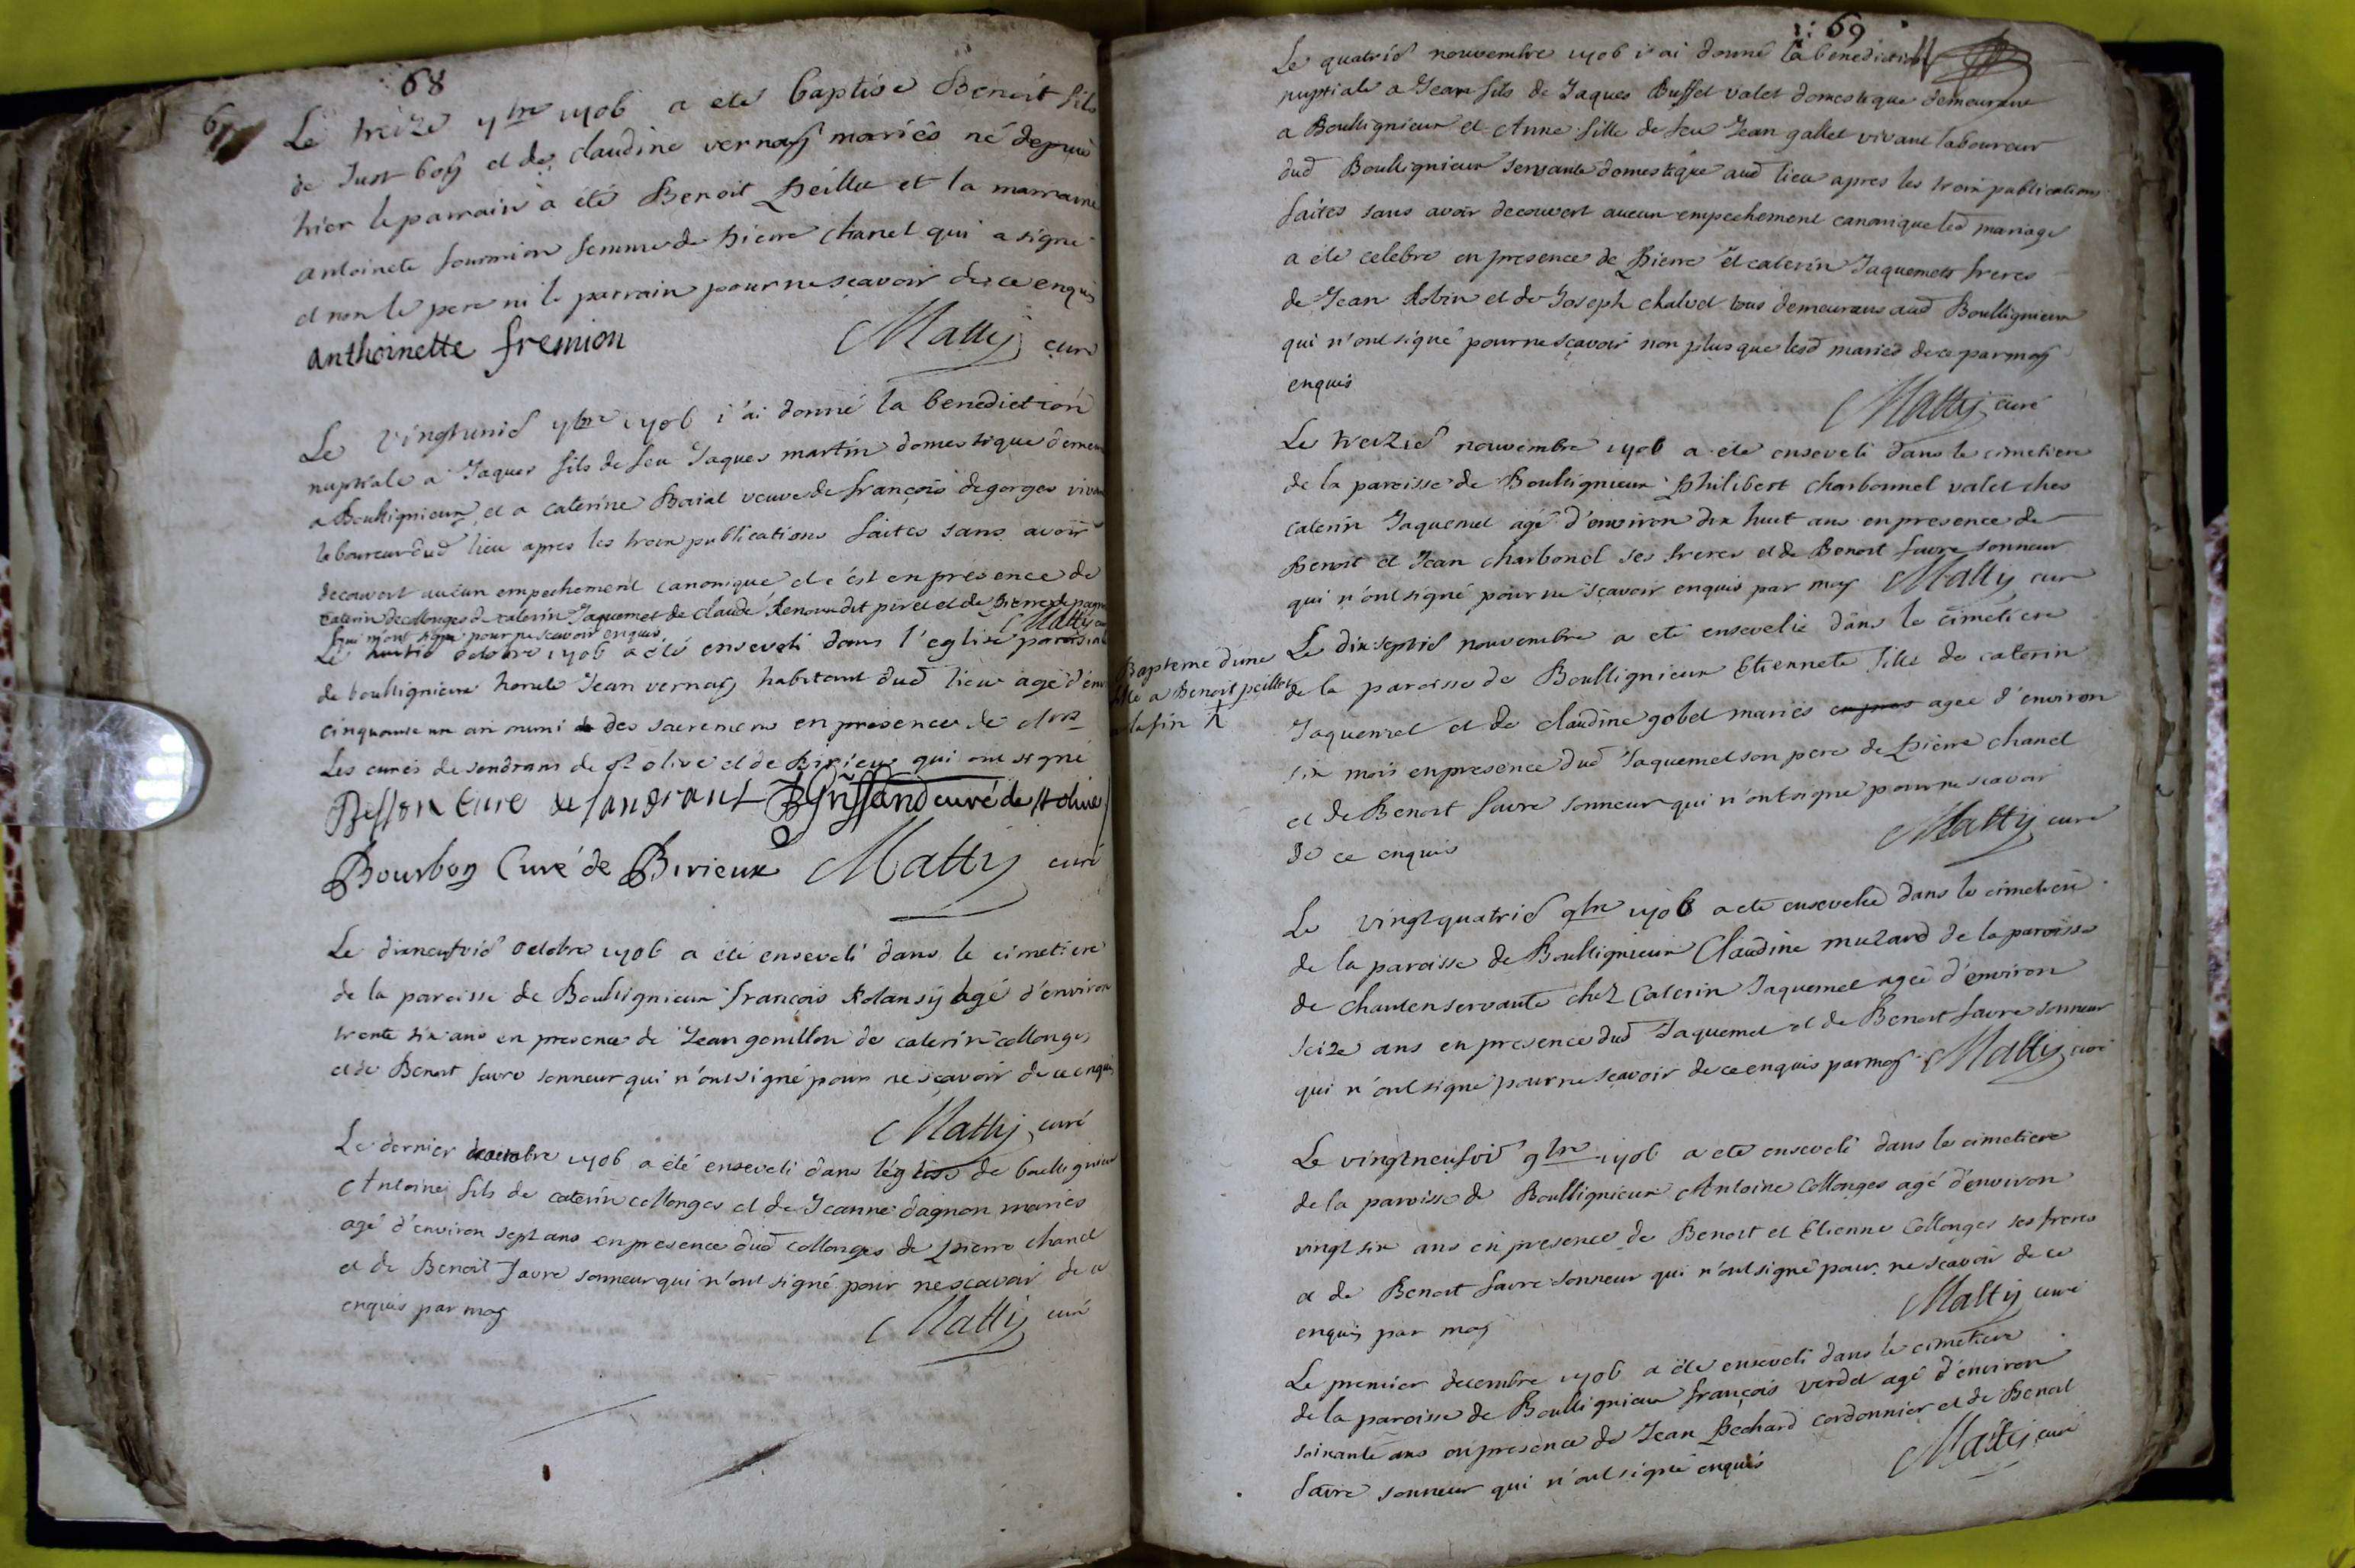 68
Le treize 7bre 1706 a eté baptisé Benoit fils
de Just boy et de claudine vernay mariés né depuis
hier le parrain a été Benoit Peillet et la marraine
antoinete fourmion femme de Pierre chanel qui a signé
et non le pere ni le parrain pour ne sçavoir de ce enquis
anthoinette fremion Mattij curé
Le vingtunie 7bre 1706 i'ai donné la benediction
nuptiale a Jaques fils de feu Jaques martin domestique demeu
a Boullignieux et a caterine Baial veuve de françois degorges viva
laboureur dud lieu apres les trois publications faites sans avoir
decouvert aucun empechement canonique et c'est en presence de
caterin decollonges de caterin Jaquemet de claude Renoud dit piret et de Pierre
qui n'ont signé pour ne scavoir enquis Mattij
Le huitie octobre 1706 a été enseveli dans l'eglise paroissiale
de boullignieux honete Jean vernay habitant dud lieu agé d'env
cinquante un an muni des sacremens en presence de
Les curés de sandrans de st olive et de Birieux qui ont signé
Besson Curé de sandrans Brissand curé de st olive
Bourbon Curé de Birieux Mattij curé
Le dixneufvie octobre 1706 a été enseveli dans le cimetiere
de la paroisse de Boullignieux françois Rolansÿ agé d'environ
trente six ans en presence de Jean genillon de caterin collonges
et de Benoit favre sonneur qui n'ont signé pour ne sçavoir de ce enquis
Mattij curé
Le dernier octobre 1706 a été enseveli dans léglise de boullignieux
Antoine fils de caterin collonges et de Jeanne dagnon mariés
agé d'environ sept ans en presence dud collonges de pierre chanel
et de Benoit favre sonneur qui n'ont signé pour ne scavoir de ce
enquis par moy Mattij curé
69
Le quatrie nouvembre 1706 i'ai donné la benediction
nuptiale a Jean fils de Jaques Buffet valet domestique demeurant
a Boullignieux et Anne fille de feu Jean gallet vivant laboureur
dud Boullignieux servante domestique aud lieu apres les trois publications
faites sans avoir decouvert aucun empechement canonique led mariage
a été celebré en presence de Pierre et caterin Jaquemet freres
de Jean Robin et de Joseph chalvet tous demeurans aud Boullignieux
qui n'ont signé pour ne sçavoir non plus que lesd mariés de ce par moy
enquis
Mattij curé
Le treizie nouvembre 1706 a été enseveli dans le cimetiere
de la paroisse de Boullignieux Philibert charbonnel valet ches
caterin Jaquemet agé d'environ dix huit ans en presence de
Benoit et Jean charbonel ses freres et de Benoit favre sonneur
qui n'ont signé pour ne scavoir enquis par moy Mattij curé
Bapteme d'une
fille a Benoit peillet
a la fin
Le dixseptie nouvembre a eté ensevelie dans le cimetiere
de la paroisse de Boullignieux Etiennete fille de caterin
Jaquemet et de claudine gobet mariés agée d'environ
six mois en presence dud Jaquemet son pere de pierre chanel
et de Benoit favre sonneur qui n'ont signé pour ne scavoir
de ce enquis Mattij curé
Le vingtquatrie 9bre 1706 a eté ensevelie dans le cimetiere
de la paroisse de Boullignieux Claudine muzard de la paroisse
de chanten servante chez Caterin Jaquemet agée d'environ
seize ans en presence dud Jaquemet et de Benoit favre sonneur
qui n'ont signé pour ne scavoir de ce enquis par moy Mattij curé
Le vingtneufvie 9bre 1706 a eté enseveli dans le cimetiere
de la paroisse de Boullignieux Antoine Collonges agé d'environ
vingt six ans en presence de Benoit et Etienne Collonges ses freres
et de Benoit favre sonneur qui n'ont signé pour ne scavoir de ce
enquis par moy Mattij curé
Le premier decembre 1706 a été enseveli dans le cimetiere
de la paroisse de Boullignieux françois verdet agé d'environ
soixante ans en presence de Jean Bechard cordonnier et de Benoit
favre sonneur qui n'ont signé enquis Mattij curé